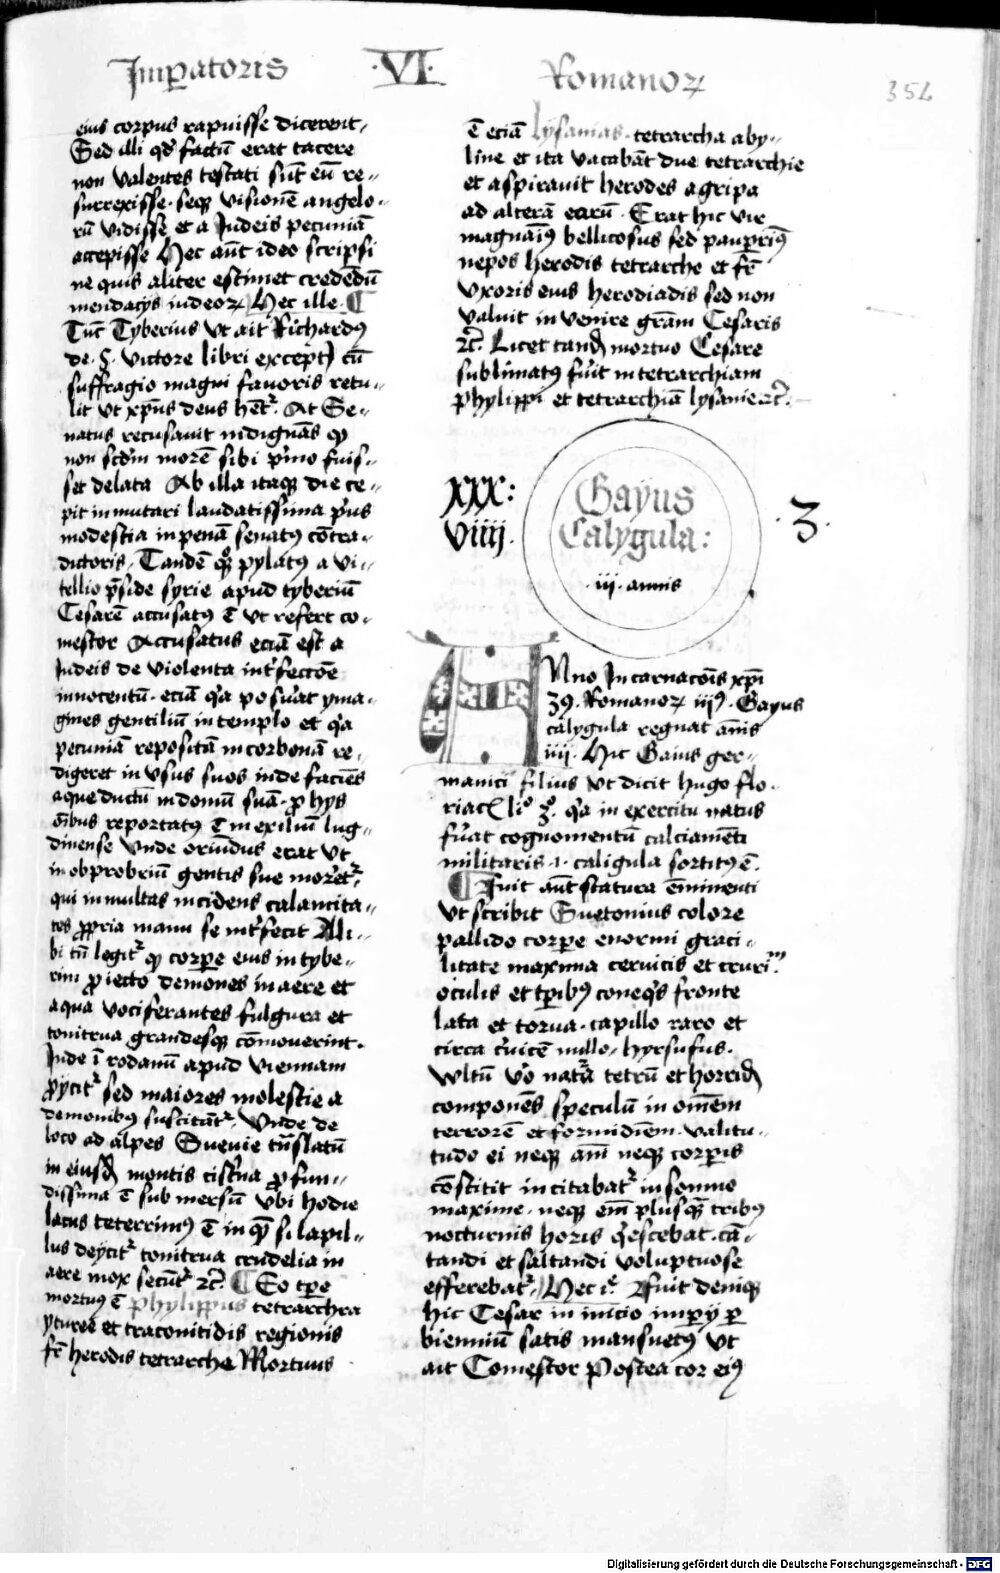 Imꝑatoris ·VI· Romanoꝝ
352
eius corpus rapuisse dicerent,
Sed illi qd' factū erat tacere
non valentes testati sūt eū re-
surrexisse. seqꝫ visionē angelo-
rū vidisse et a Judeis pecuniā
accepisse Hec aūt ideo scripsi
ne quis aliter estimet credēdū
mendacijs iudeoꝝ Hec ille ¶
Tūc Tyberius vt ait Richardꝰ
de .S. victore libri except) cū
suffragio magni fauoris retu-
lit vt xp̄us deus hēr̄. At Se-
natus recusauit indignās ꝙ
non scd'm morē sibi p'mo fuis-
set delata Ab illa itaqꝫ die ce-
pit inmutari laudatissima p'us
modestia in penā senatꝰ cōtra-
dictoris, Tandē qꝫ pylatꝰ a vi-
tellio p̄side syrie apud tyberiū
Cesarē accusatꝰ ē vt refert co-
mestor Accusatus eciā est a
Judeis de violenta int'fectōe
innocentū. eciā q'a posu'at yma-
gines gentiliū in templo et q'a
pecuniā repositā in corbonā re-
digeret in vsus suos inde faciēs
aque ductū in domū suā. ꝓ hijs
ōibus reportatꝰ ē in exiliū lug-
dinense vnde oriūdus erat vt
in obprobriū gentis sue moret'.
qui in multas incidens calamita-
tes ꝓpria manu se int'fecit Ali-
bi tn̄ legit' ꝙ corpe eius in tybe-
rim ꝓiecto demones in aere et
aqua vociferantes fulgura et
tonitrua grandesqꝫ cōmouerint.
Inde ī rodanū apud viennam
ꝓijcit' sed maiores molestie a
demonibus suscitāt'. Vnde de
loco ad alpes Sueuie tn̄slatū
in eiusdꝫ montis cist'na ꝓfun-
dissima ē submersū vbi hodie
lacus teterrimꝰ ē in quē si lapil-
lus deijcit' tonitrua crudelia in
aere mox secūt' ⁊c̄. ¶ Eo tꝑe
mortuꝰ ē Phylippus tetrarchra
yturee et traconitidis regionis
fr̄ herodis tetrarche Mortuus
ē eciā lysanias. tetrarcha aby-
line et ita vacabāt due tetrarchie
et aspirauit herodes agripa
ad alterā earū. Erat hic vir
magnaīꝰ bellicosus sed pauperīꝰ
nepos herodis tetrarche et fr̄
vxoris eius herodiadis sed non
valuit in venire grām Cesaris
⁊c̄. Licet tandꝫ mortuo Cesare
sublimatꝰ fu'it in tetrarchiam
phylippi et tetrarchiā lysanie ⁊c̄.
XXX:
viiij.
Gayus
Calygula:
·iij· annis
·3·
ANno Incarnacōis xp̄i
39. Romanoꝝ iijꝰ. Gayus
calygula regnat ānis
iiij. Hic Gaius ger-
manici filius vt dicit hugo flo-
riac) liº 3º. q'a in exercitu natus
fu'at cognomentū calciamēti
militaris .i. caligula sortitꝰ ē.
¶ Fuit aūt statura ēminenti
vt scribit Suetonius colore
pallido corpe enormi graci-
litate maxima ceruicis et cruriū
oculis et tꝑibꝰ coneq's fronte
lata et torua. capillo raro et
circa c'uicē nullo, hyrsufus.
wltū v'o nat'ā tetrū et horridꝫ
componēs speculū in omēm
terrorē et formidiēm. valitu-
tudo ei neqꝫ aīm neqꝫ corpis
cōstitit incitabat' insomnie
maxime. neqꝫ em̄ plusqꝫ tribꝰ
nocturnis horis q'escebat. cā-
tandi et saltandi voluptuose
efferebat'. Hec iᵉ. Fuit deniqꝫ
hic Cesar in inicio impij ꝑ
bienniū satis mansuetꝰ vt
ait Comestor Postea cor eiꝰ
Digitalisierung gefördert durch die Deutsche Forschungsgemeinschaft - DFG